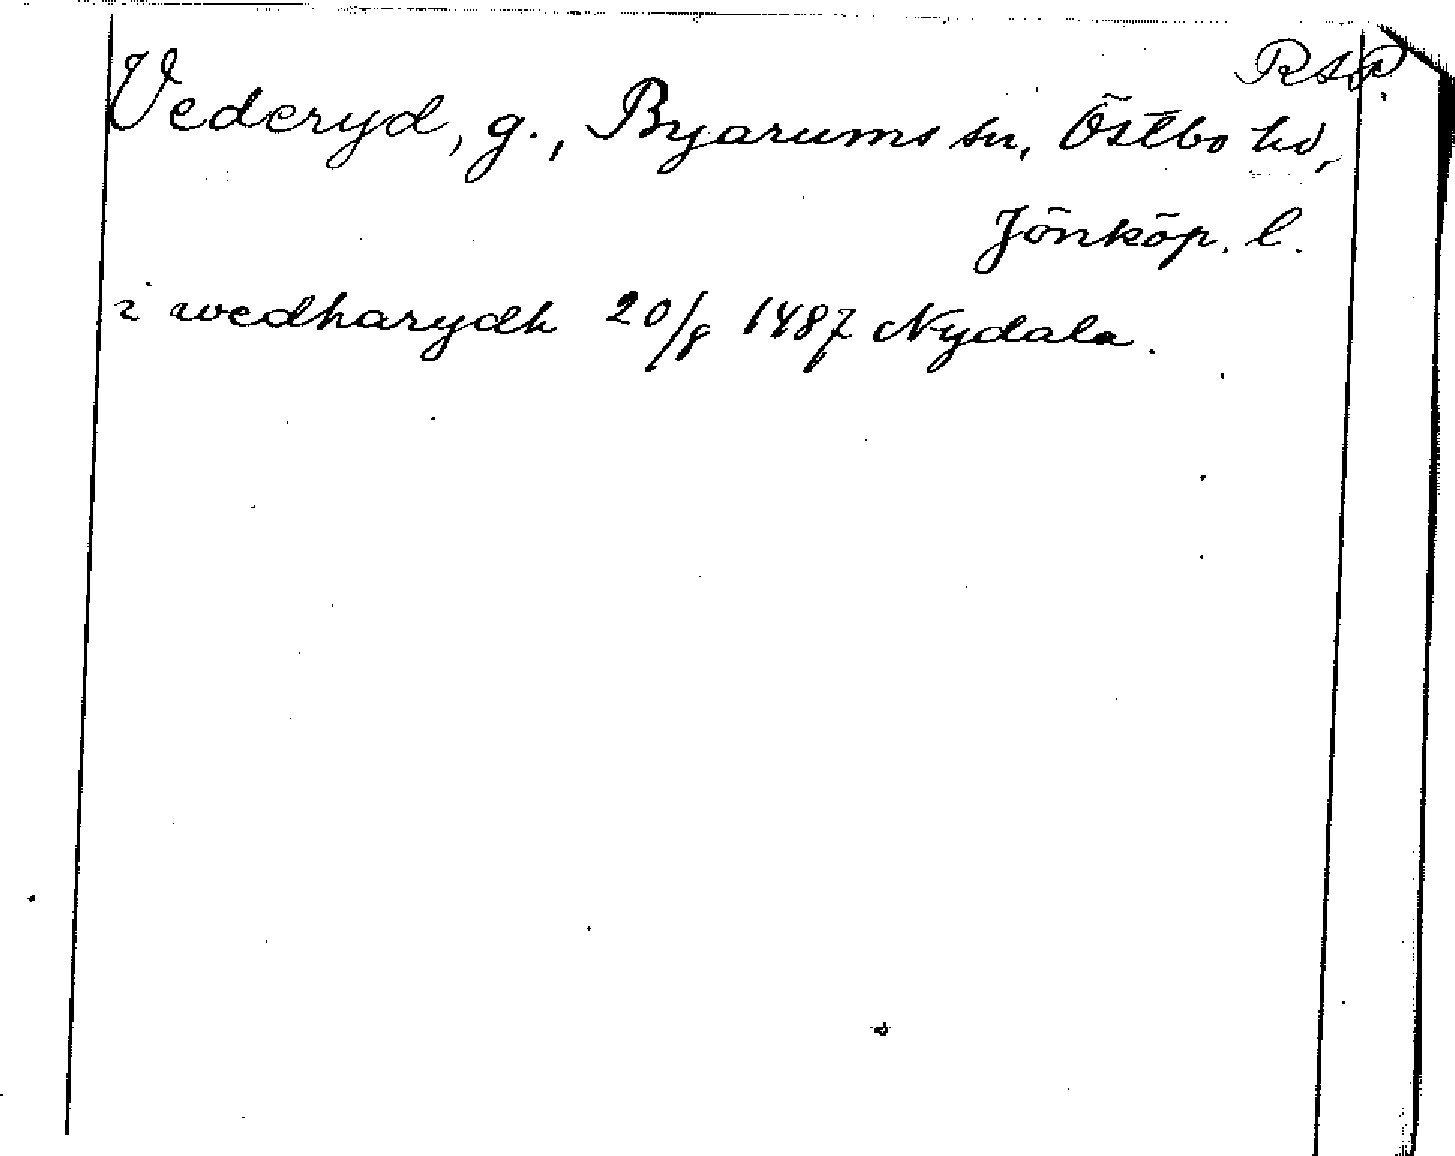 RAP.
Vederyd, g., Byarums sn, Östbo hd,
Jönköp. l.
i wedharydh 20/8 1487 Nydala.